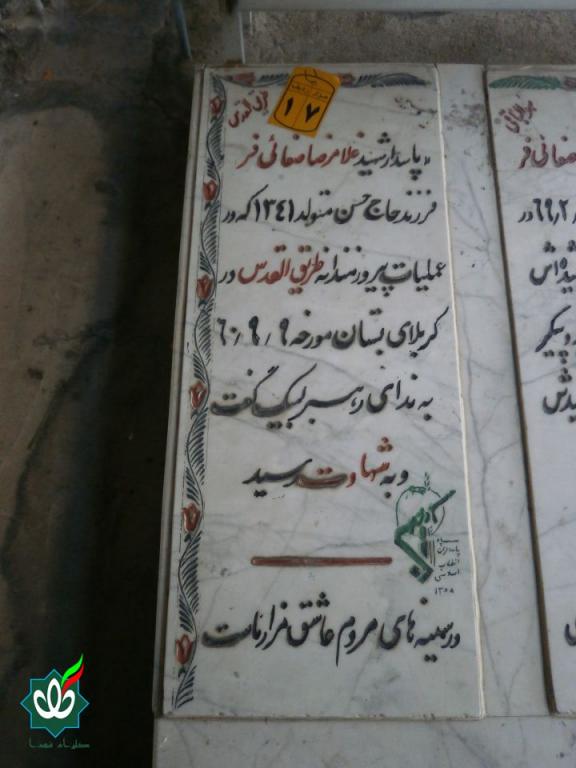 ۱۷
پاسدار شهید غلامرضا صفائی فر
فرزند حاج حسن متولد ۱۳۴۱ که در
عملیات پیروزمندانه طریق القدس در
کربلای بستان مورخه ۶۰/۹/۹
به ندای رهبر لبیک گفت
و به شهادت رسید
سپاه
پاسداران
انقلاب
اسلامی
۱۳۵۸
در سینه های مردم عاشق مزار ماست
صفائی فر
۶۹/۲/
در
پیکر
گلزار شهدا